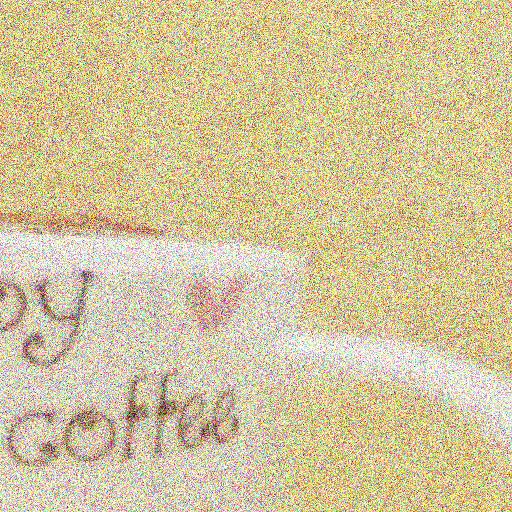 oy
coffee